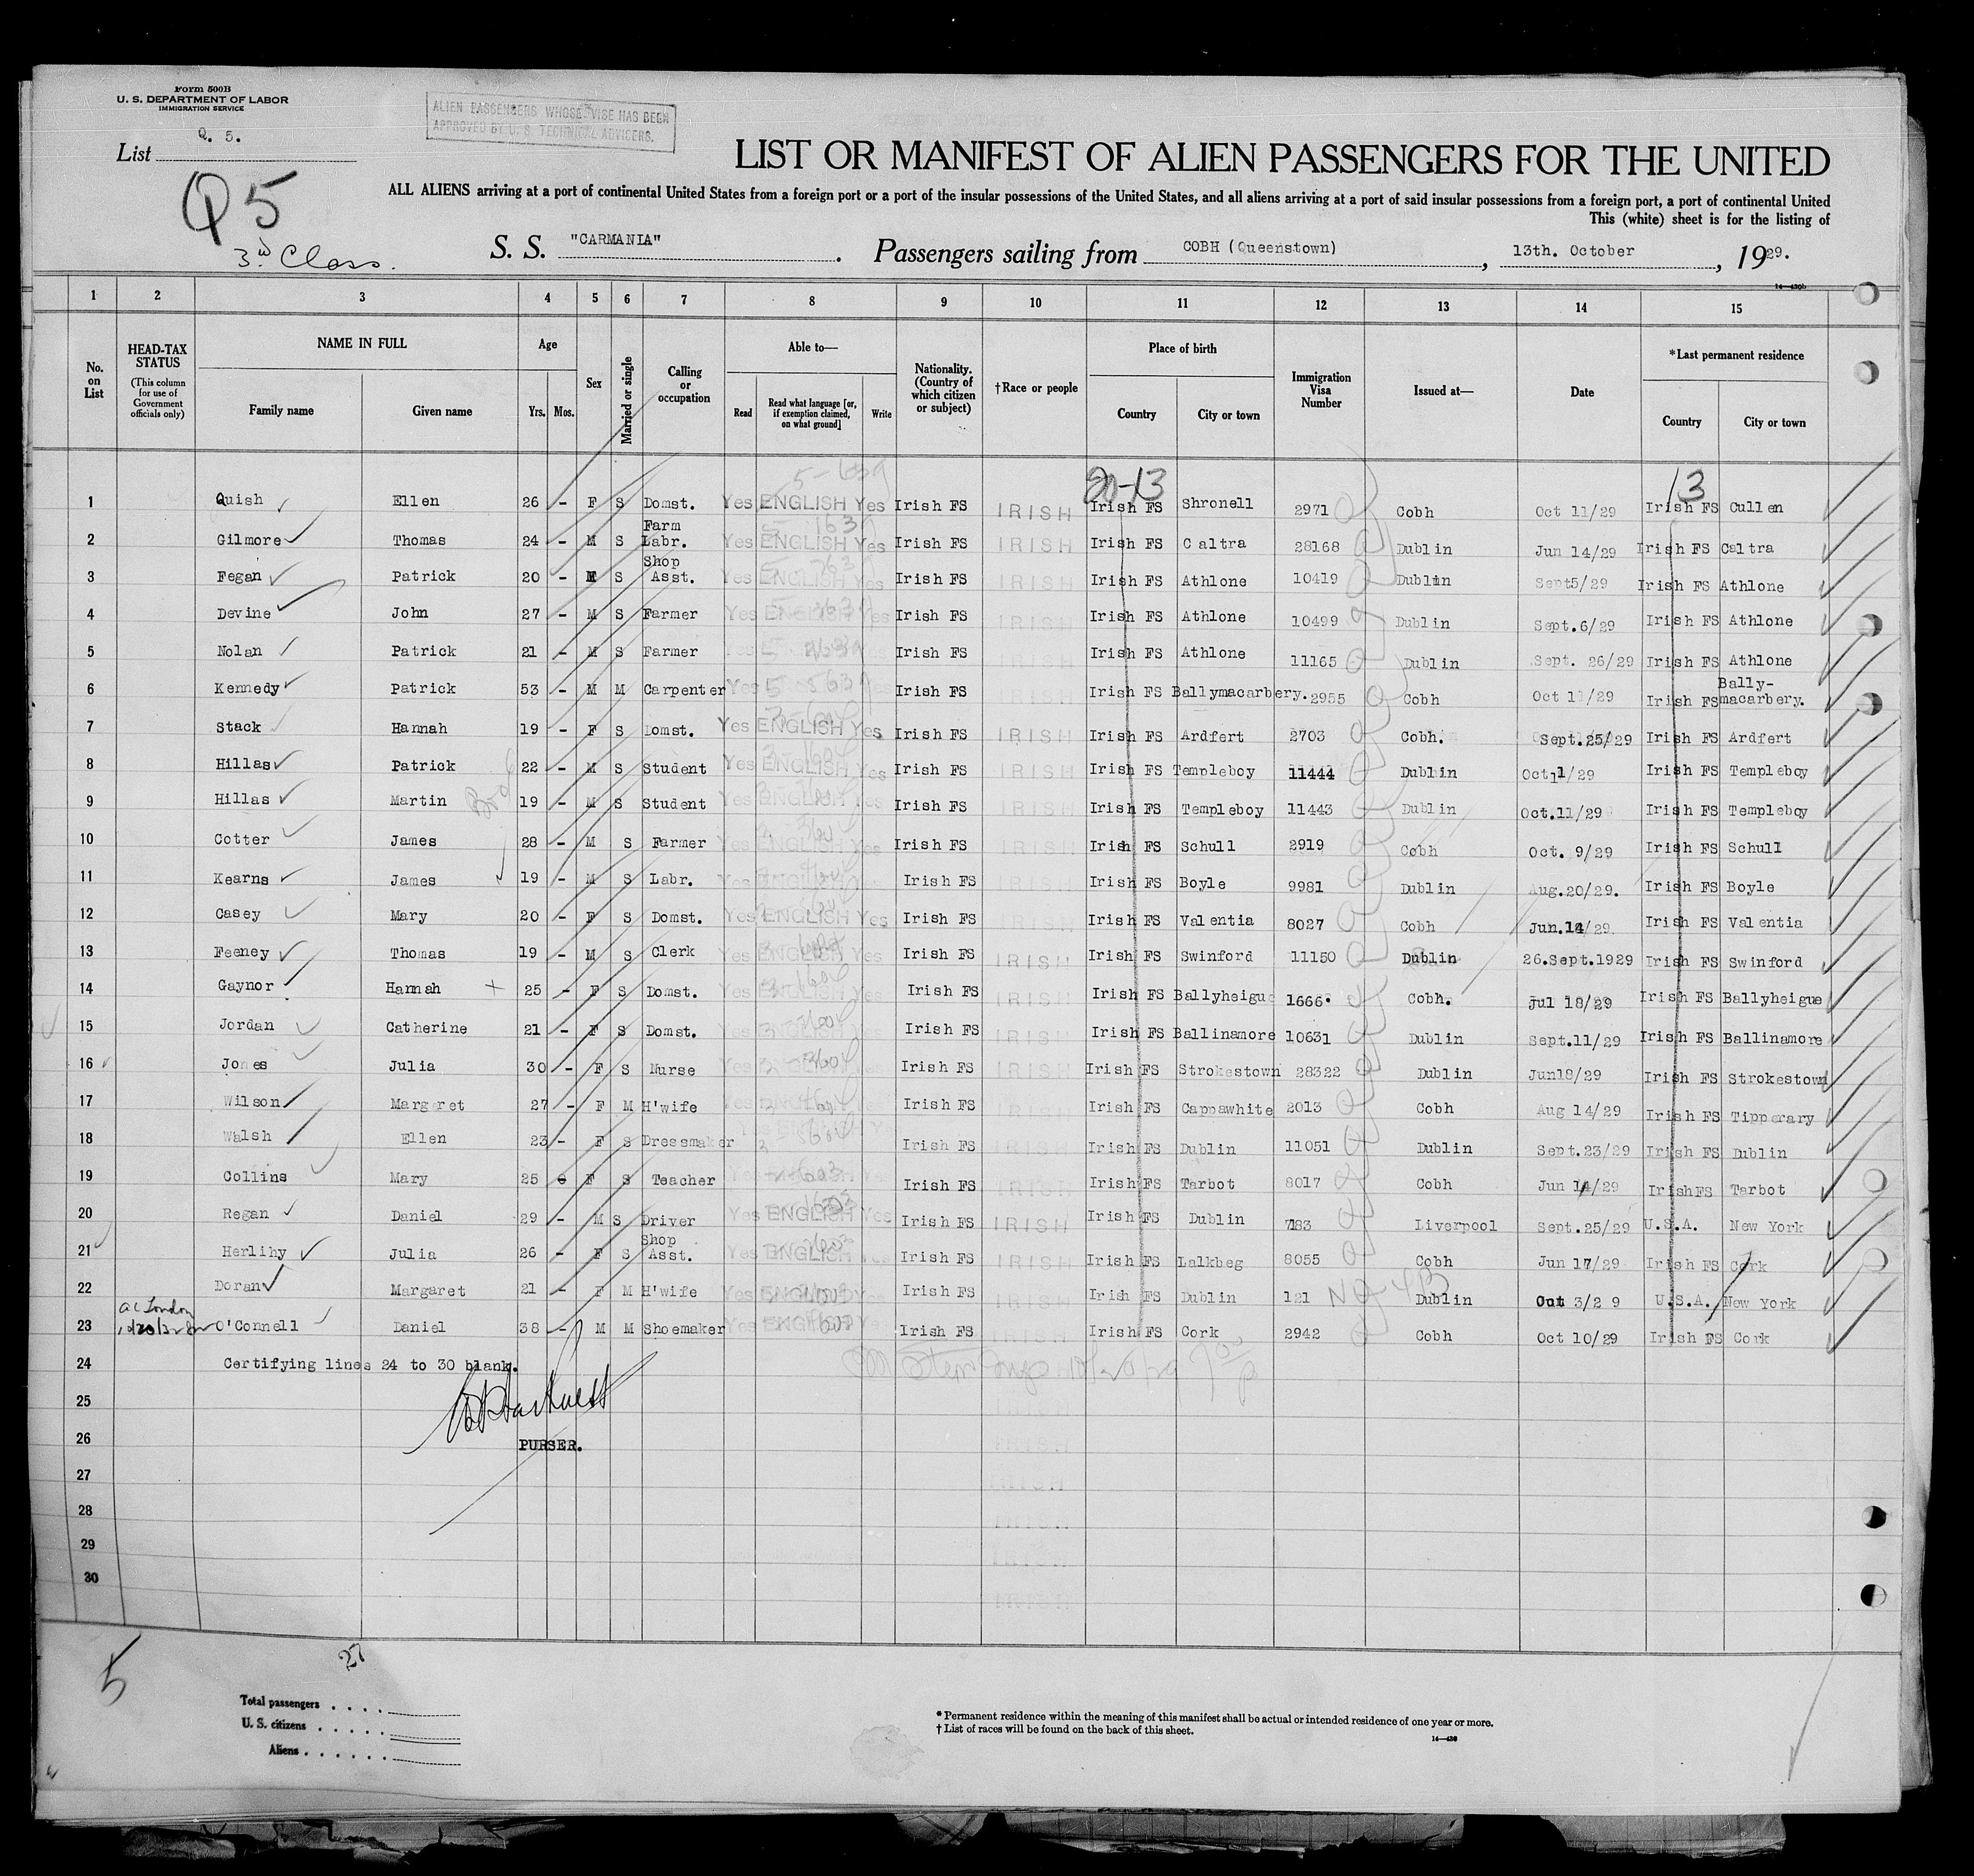 Form 500B
U. S. DEPARTMENT OF LABOR
IMMIGRATION SERVICE
ALIEN PASSENGERS WHOSE VISE HAS BEEN
APPROVED BY U. S. TECHNICAL ADVISERS.
List Q. 5.
Q5
3rd Class.
LIST OR MANIFEST OF ALIEN PASSENGERS FOR THE UNITED
ALL ALIENS arriving at a port of continental United States from a foreign port or a port of the insular possessions of the United States, and all aliens arriving at a port of said insular possessions from a foreign port, a port of continental United
This (white) sheet is for the listing of
S. S. "CARMANIA". Passengers sailing from COBH (Queenstown), 13th. October, 1929.
14—430b
1 2 3 4 5 6 7 8 9 10 11 12 13 14 15
No. on List
HEAD-TAX STATUS
(This column for use of Government officials only)
NAME IN FULL
Family name Given name
Age
Yrs. Mos.
Sex
Married or single
Calling or occupation
Able to—
Read
Read what language [or, if exemption claimed, on what ground]
Write
Nationality. (Country of which citizen or subject)
†Race or people
Place of birth
Country City or town
Immigration Visa Number
Issued at—
Date
*Last permanent residence
Country City or town
20-13 13
1 Quish Ellen 26 - F S Domst. Yes ENGLISH Yes Irish FS IRISH Irish FS Shronell 2971 Cobh Oct 11/29 Irish FS Cullen
2 Gilmore Thomas 24 - M S Farm Labr. Yes ENGLISH Yes Irish FS IRISH Irish FS Caltra 28168 Dublin Jun 14/29 Irish FS Caltra
3 Fegan Patrick 20 - M S Shop Asst. Yes ENGLISH Yes Irish FS IRISH Irish FS Athlone 10419 Dublin Sept5/29 Irish FS Athlone
4 Devine John 27 - M S Farmer Yes ENGLISH Yes Irish FS IRISH Irish FS Athlone 10499 Dublin Sept.6/29 Irish FS Athlone
5 Nolan Patrick 21 - M S Farmer Yes Irish FS IRISH Irish FS Athlone 11165 Dublin Sept. 26/29 Irish FS Athlone
6 Kennedy Patrick 53 - M M Carpenter Yes Yes Irish FS IRISH Irish FS Ballymacarbery. 2955 Cobh Oct 11/29 Irish FS Bally-macarbery.
7 Stack Hannah 19 - F S Domst. Yes ENGLISH Yes Irish FS IRISH Irish FS Ardfert 2703 Cobh. Sept.25/29 Irish FS Ardfert
8 Hillas Patrick 22 - M S Student Yes ENGLISH Yes Irish FS IRISH Irish FS Templeboy 11444 Dublin Oct11/29 Irish FS Templeboy
9 Hillas Martin 19 - M S Student Yes ENGLISH Yes Irish FS IRISH Irish FS Templeboy 11443 Dublin Oct.11/29 Irish FS Templeboy
10 Cotter James 28 - M S Farmer Yes ENGLISH Yes Irish FS IRISH Irish FS Schull 2919 Cobh Oct. 9/29 Irish FS Schull
11 Kearns James 19 - M S Labr. Yes ENGLISH Yes Irish FS IRISH Irish FS Boyle 9981 Dublin Aug.20/29. Irish FS Boyle
12 Casey Mary 20 - F S Domst. Yes ENGLISH Yes Irish FS IRISH Irish FS Valentia 8027 Cobh Jun.14/29. Irish FS Valentia
13 Feeney Thomas 19 - M S Clerk Yes ENGLISH Yes Irish FS IRISH Irish FS Swinford 11150 Dublin 26.Sept.1929 Irish FS Swinford
14 Gaynor Hannah 25 - F S Domst. Yes ENGLISH Yes Irish FS IRISH Irish FS Ballyheigue 1666. Cobh. Jul 18/29 Irish FS Ballyheigue
15 Jordan Catherine 21 - F S Domst. Yes ENGLISH Yes Irish FS IRISH Irish FS Ballinamore 10631 Dublin Sept.11/29 Irish FS Ballinamore
16 Jones Julia 30 - F S Nurse Yes ENGLISH Yes Irish FS IRISH Irish FS Strokestown 28322 Dublin Jun18/29 Irish FS Strokestown
17 Wilson Margaret 27 - F M H'wife Yes ENGLISH Yes Irish FS IRISH Irish FS Cappawhite 2013 Cobh Aug 14/29 Irish FS Tipperary
18 Walsh Ellen 23 - F S Dressmaker Yes ENGLISH Yes Irish FS IRISH Irish FS Dublin 11051 Dublin Sept.23/29 Irish FS Dublin
19 Collins Mary 25 6 F S Teacher Yes ENGLISH Yes Irish FS IRISH Irish FS Tarbot 8017 Cobh Jun 14/29 IrishFS Tarbot
20 Regan Daniel 29 - M S Driver Yes ENGLISH Yes Irish FS IRISH Irish FS Dublin 783 Liverpool Sept.25/29 U.S.A. New York
21 Herlihy Julia 26 - F S Shop Asst. Yes ENGLISH Yes Irish FS IRISH Irish FS Lalkbeg 8055 Cobh Jun 17/29 Irish FS Cork
22 Doran Margaret 21 - F M H'wife Yes ENGLISH Yes Irish FS IRISH Irish FS Dublin 121 Dublin Oct 3/29 U.S.A. New York
23 O'Connell Daniel 38 - M M Shoemaker Yes ENGLISH Yes Irish FS IRISH Irish FS Cork 2942 Cobh Oct 10/29 Irish FS Cork
24 Certifying lines 24 to 30 blank.
25
26 PURSER.
27
28
29
30
5
27
Total passengers
U. S. citizens
Aliens
* Permanent residence within the meaning of this manifest shall be actual or intended residence of one year or more.
† List of races will be found on the back of this sheet.
14—430